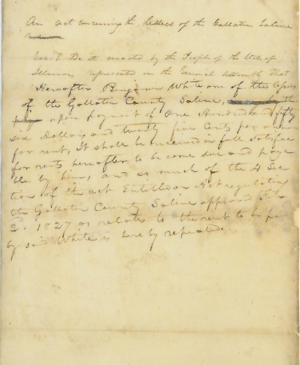 An act concerning the lessees of the Gallatin Saline
Sec 1 Be it enacted by the People of the State of
Illinois represented in the General Assembly That
Hereafter Benjamin White one of the lessees
of the Gallatin County Saline,
upon payment of One Hundred & fifty
six Dollars and twenty five Cents per annum
for rent, It shall be received in full
for rents hereafter to be come due and paya
ble by him, and so much of the 4 Sec
tion of the act Entitled An Act regulating
the Gallatin County Saline approved
1827 as relates to the rent to be paid
by said White is hereby repealed